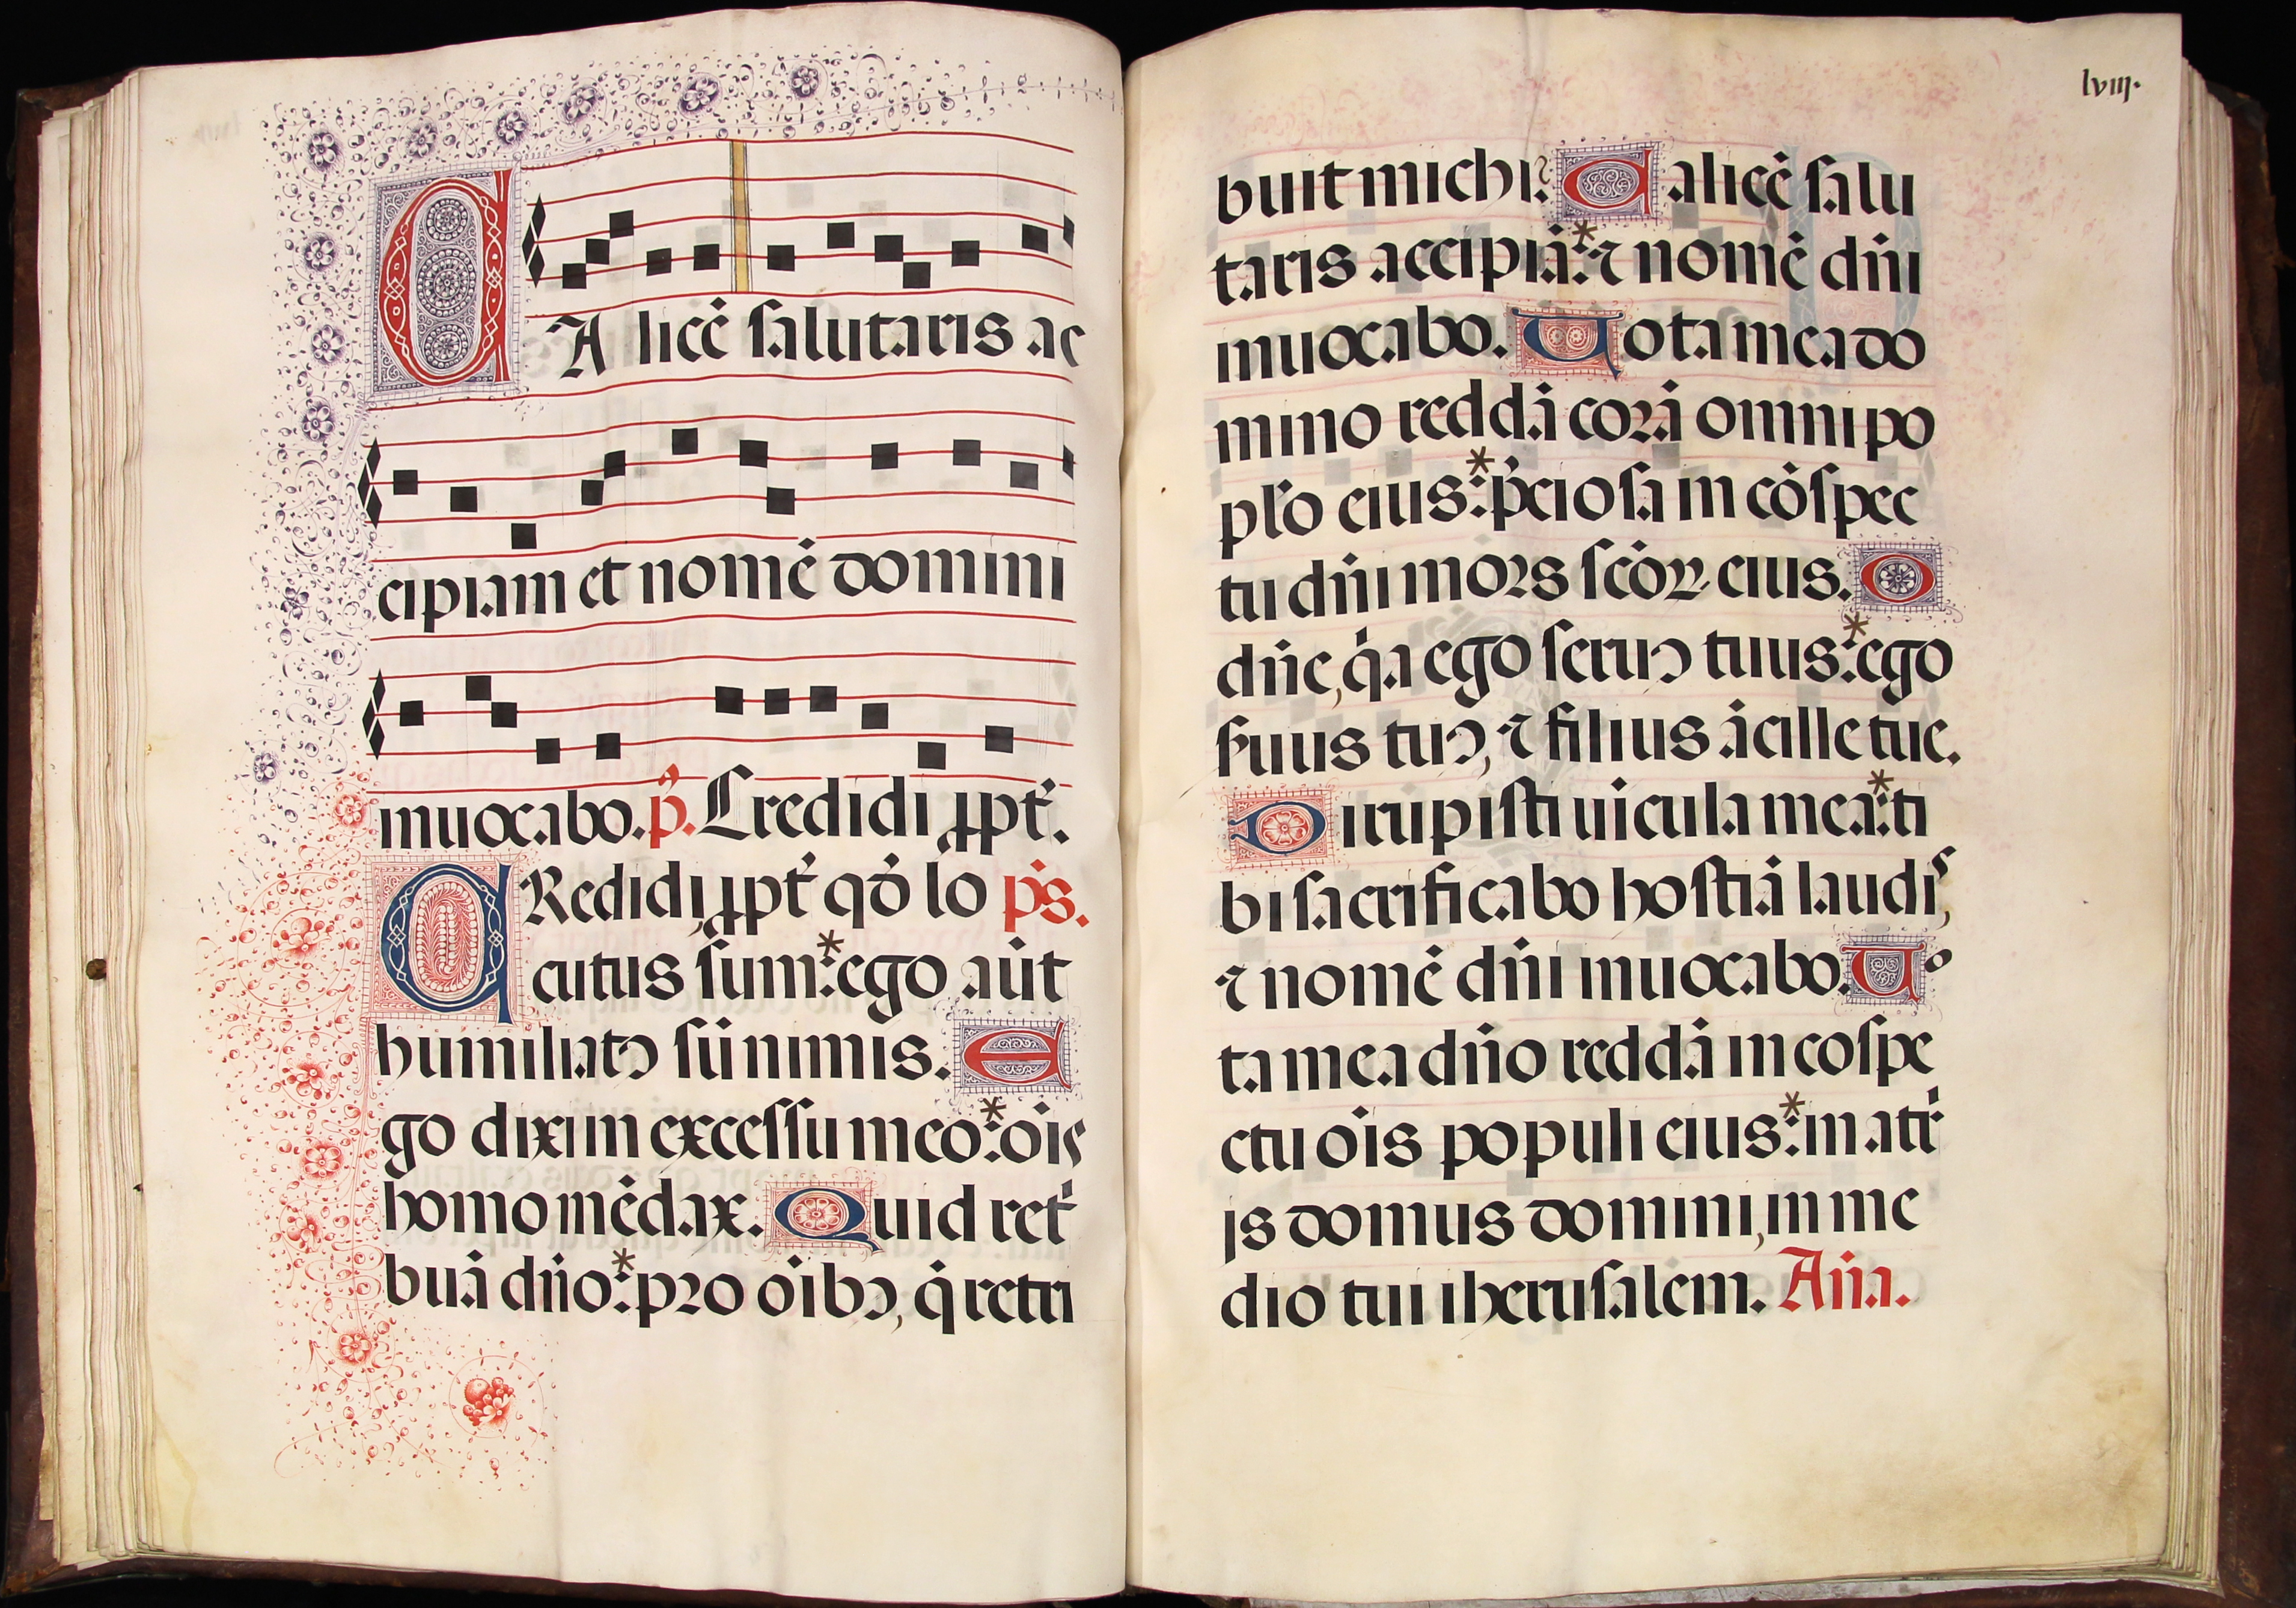 CA licē salutaris ac
cipiam et nomē domini
inuocabo. p̄. Credidi ꝓpt̄.
CRedidi, ꝓpt̄ qđ lo p̄s.
cutus sum: * ego aūt
humiliatꝰ sū nimis. E
go dixi in excessu meo: * ois̄
homo mēdax. Quid ret̄
buā dn̄o: * pro oībꝰ, q̄ retri
lviij.
buit michi? Calicē salu
taris accipiā: * ⁊ nomē dn̄i
inuocabo. Uota mea do
mino reddā corā omni po
pl̄o eius: * p̄ciosa in cōspec
tu dn̄i mors scōꝝ eius. O
dn̄e, q̄a ego seruꝰ tuus: * ego
s̄uus tuꝰ, ⁊ filius ācille tue.
Dirupisti uīcula mea: * ti
bi sacrificabo hostiā laudis,
⁊ nomē dn̄i inuocabo. Uo
ta mea dn̄o reddā in cospe
ctu oīs populi eius: * in atr̄
js domus domini, in me
dio tui iherusalem. An̄a.